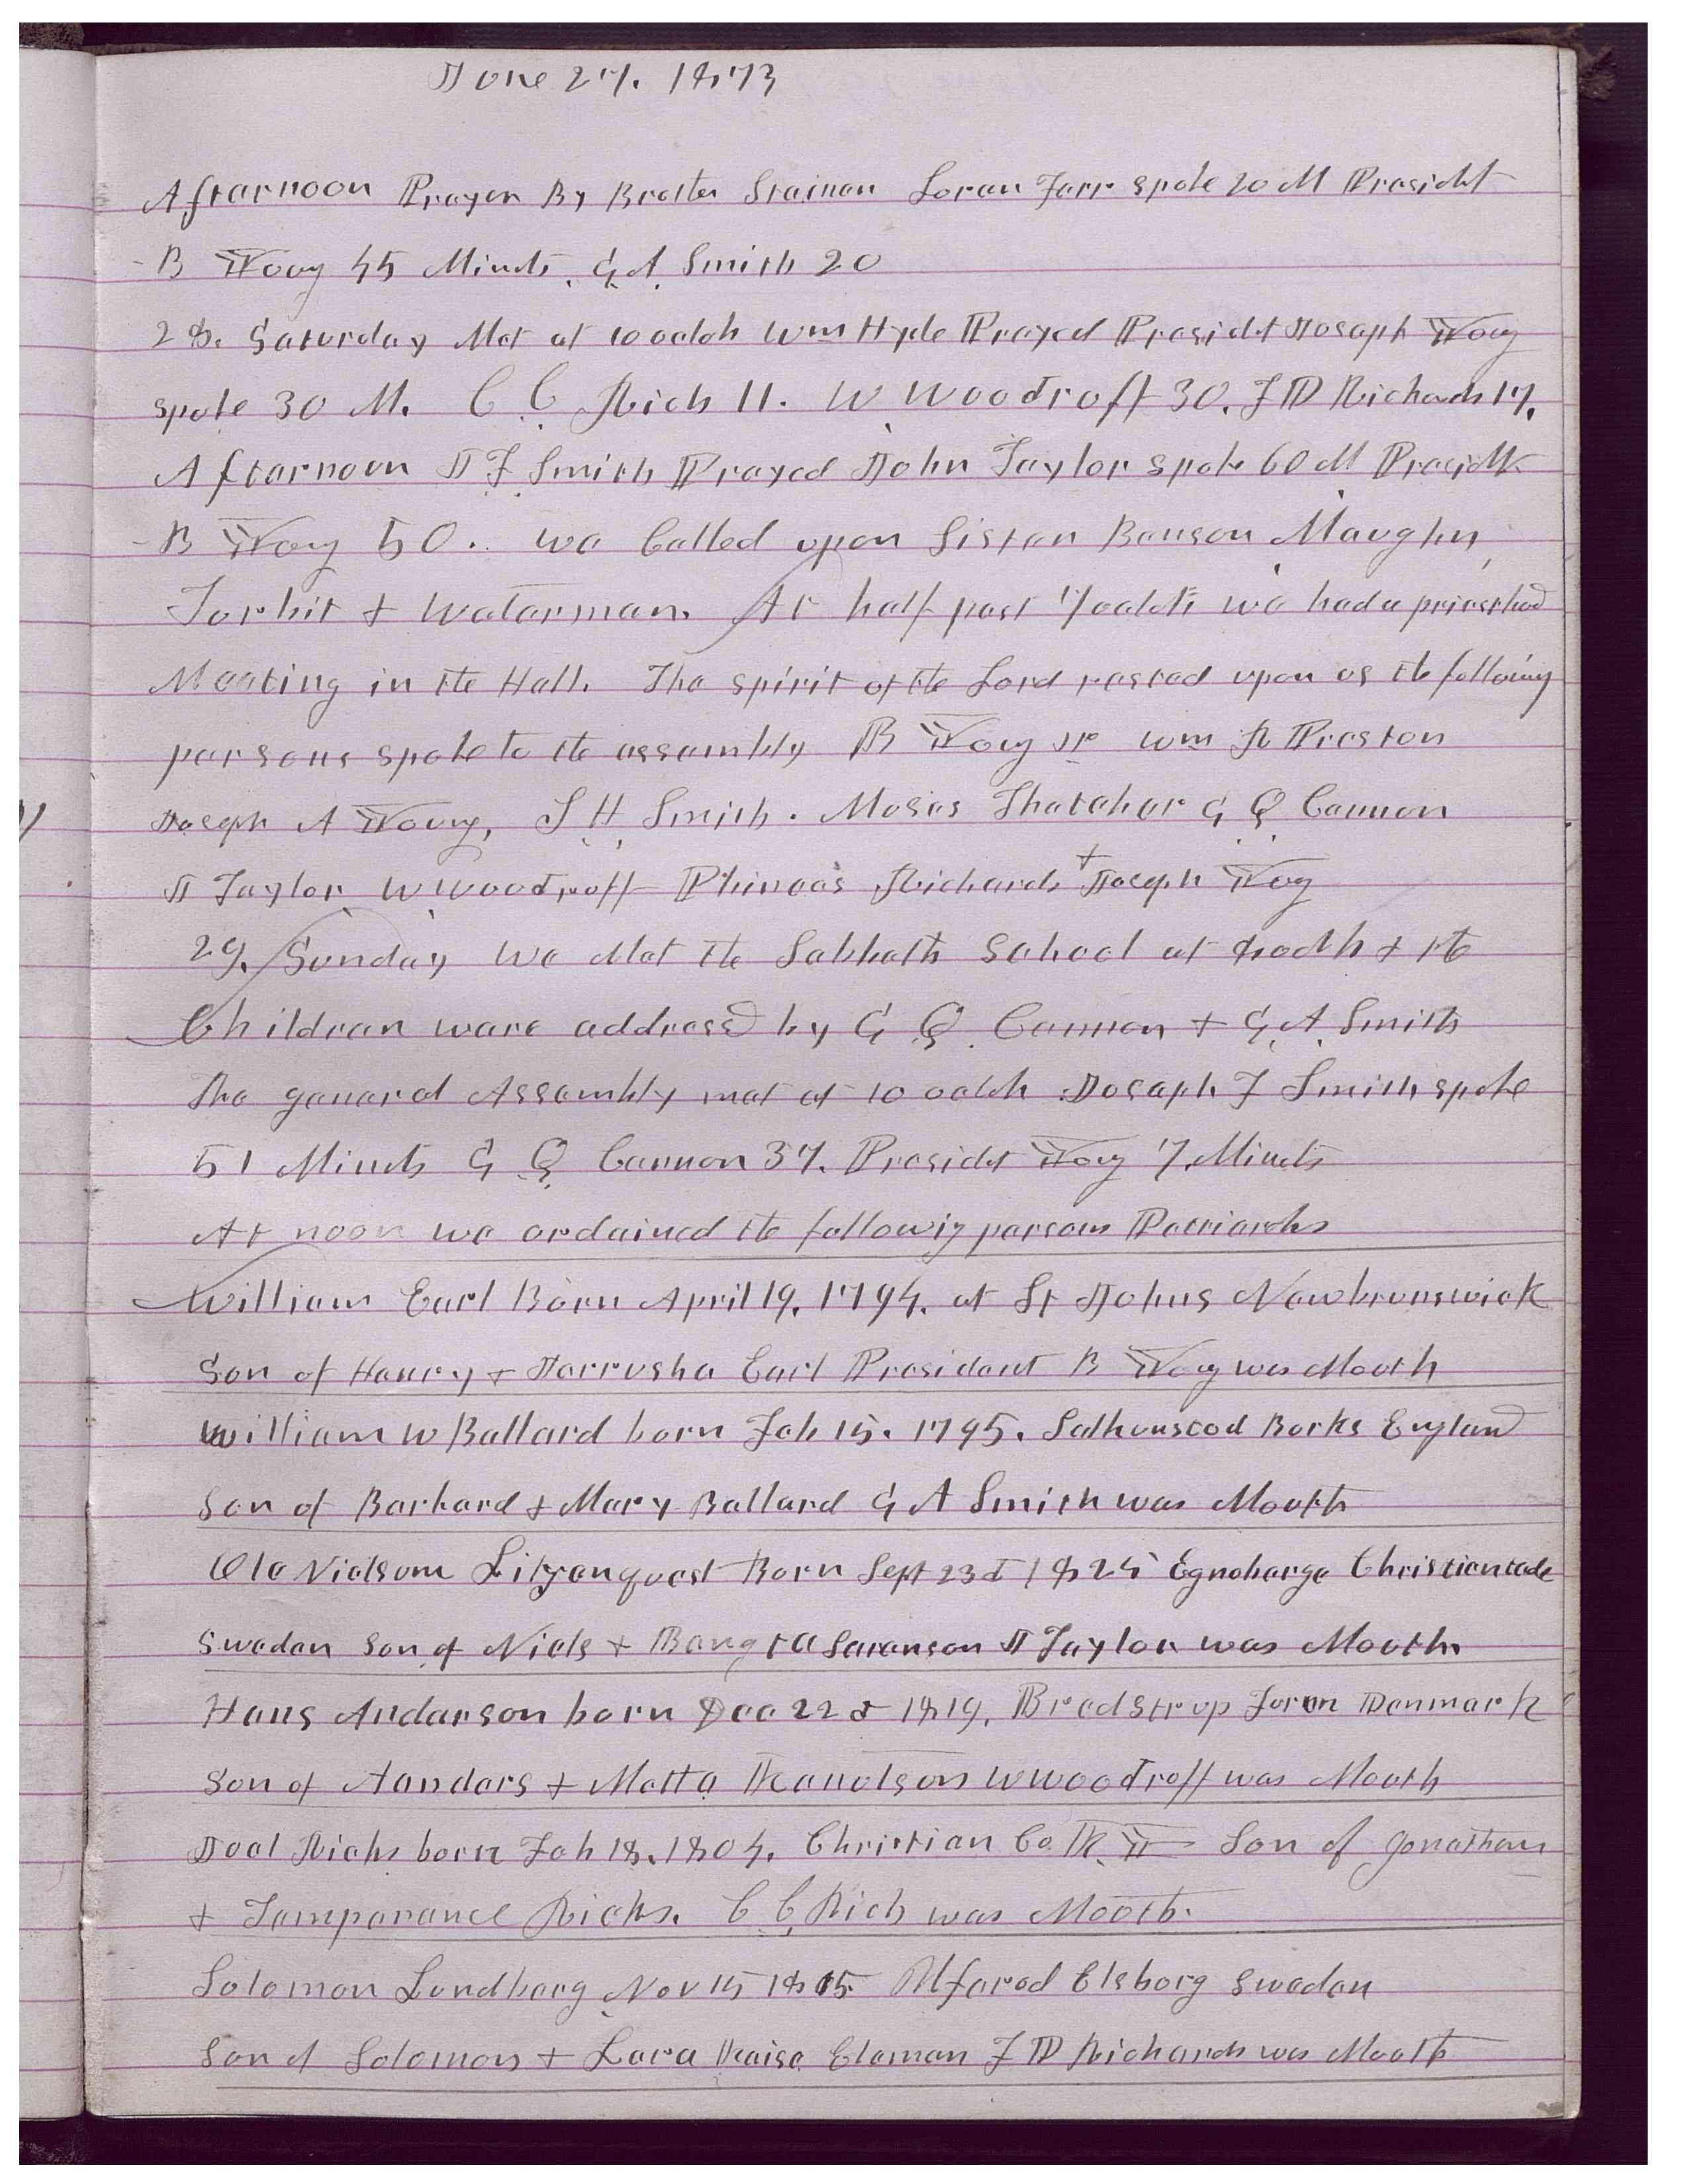 June 27. 1873
Afternoon Prayer By Brother Stainer Loran Farr spoke 20 M Presidet
B Young 45 Minuts G A Smith 20
28. Saturday Met at 10 oclok Wm Hyde Prayed Presidet Joseph Young
spoke 30 M. C C Rich 11. W Woodruff 30. F D Richards 17.
Afternoon J F Smith Prayed John Taylor spoke 60 M Presidet
B Young 50. we Called upon Sister Benson Maughn
Torbit & Waterman. At half past 7 oclok we had a priesthood
Meeting in the Hall. The spirit of the Lord rested upon us the following
persons spoke to the assembly B Young jr Wm B Preston
Joseph A Young, S H Smith. Moses Thatcher G Q Cannon
J Taylor W Woodruff Phineas Richards & Joseph Young
29. Sunday We Met the Sabbath School at 8 oclok & the
Children were addressed by G Q Cannon & G A Smith
The general Assembly met at 10 oclok Joseph F Smith spoke
51 Minuts G Q Cannon 37. Presidet Young 7. Minuts
At noon we ordained the following persons Patriarchs
William Earl Born April 19, 1794. at St Johns Newbrunswick
Son of Henry & Jerrusha Earl President B Young was Mouth
William W Ballard born Feb 15. 1795. Berks England
Son of Barbard & Mary Ballard G A Smith was Mouth
Ole Nielsom Liljenquest Born Sept 23d 1825 Egneberge Christianstade
Sweden Son of Niels & Bengta Sarenson J Taylor was Mouth
Hans Anderson born Dec 22d 1819, Bredstrup Denmark
Son of Aanders & Metta Kanutson W Woodruff was Mouth
Joel Ricks born Feb 18, 1804. Christian Co. K. Y Son of Jonathan
& Temperance Ricks. C C Rich was Mouth.
Solomon Lundberg Nov 15 1815 Alfored Elsborg Sweden
Son of Solomon & Cara Elaman F D Richards was Mouth